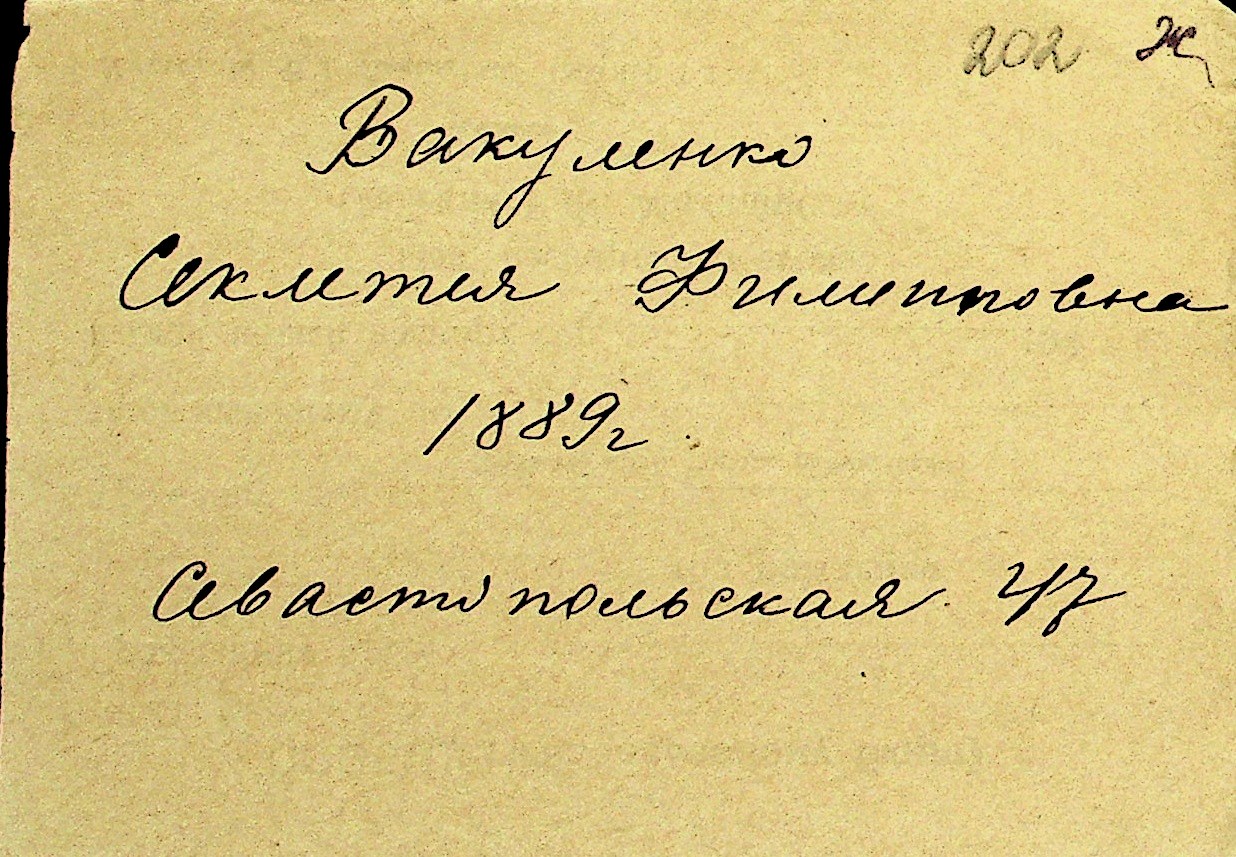 202 ж
Вакуленко
Секлетия Филипповна
1889г.
Севастопольская 47